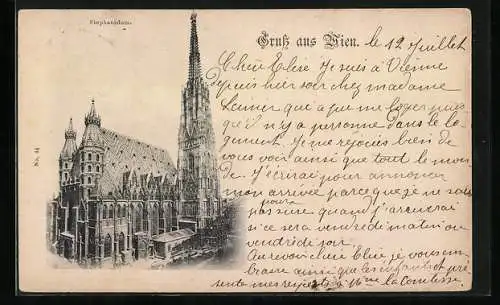 Stephansdom.
Gruß aus Wien. le 12 Juillet
Cheir Elise Je suis à Vienne
depuis hier soir chez madame
qui a pu me loger puis
qu'il n'y a personne dans le lo
gement. Je me rejouis bien de
vous voir ainsi que tout le mon
de. J'écrirai pour annoncer
mon arrivée parce que je ne sais
pas sure quand j'arriverai
pour
si ce sera vendredi matin ou
vendredi soir.
Au revoir cher Elise, je vous em
brasse ainsi que les enfants et pré
sente mes respects à Mme la Comtesse.
No. 44